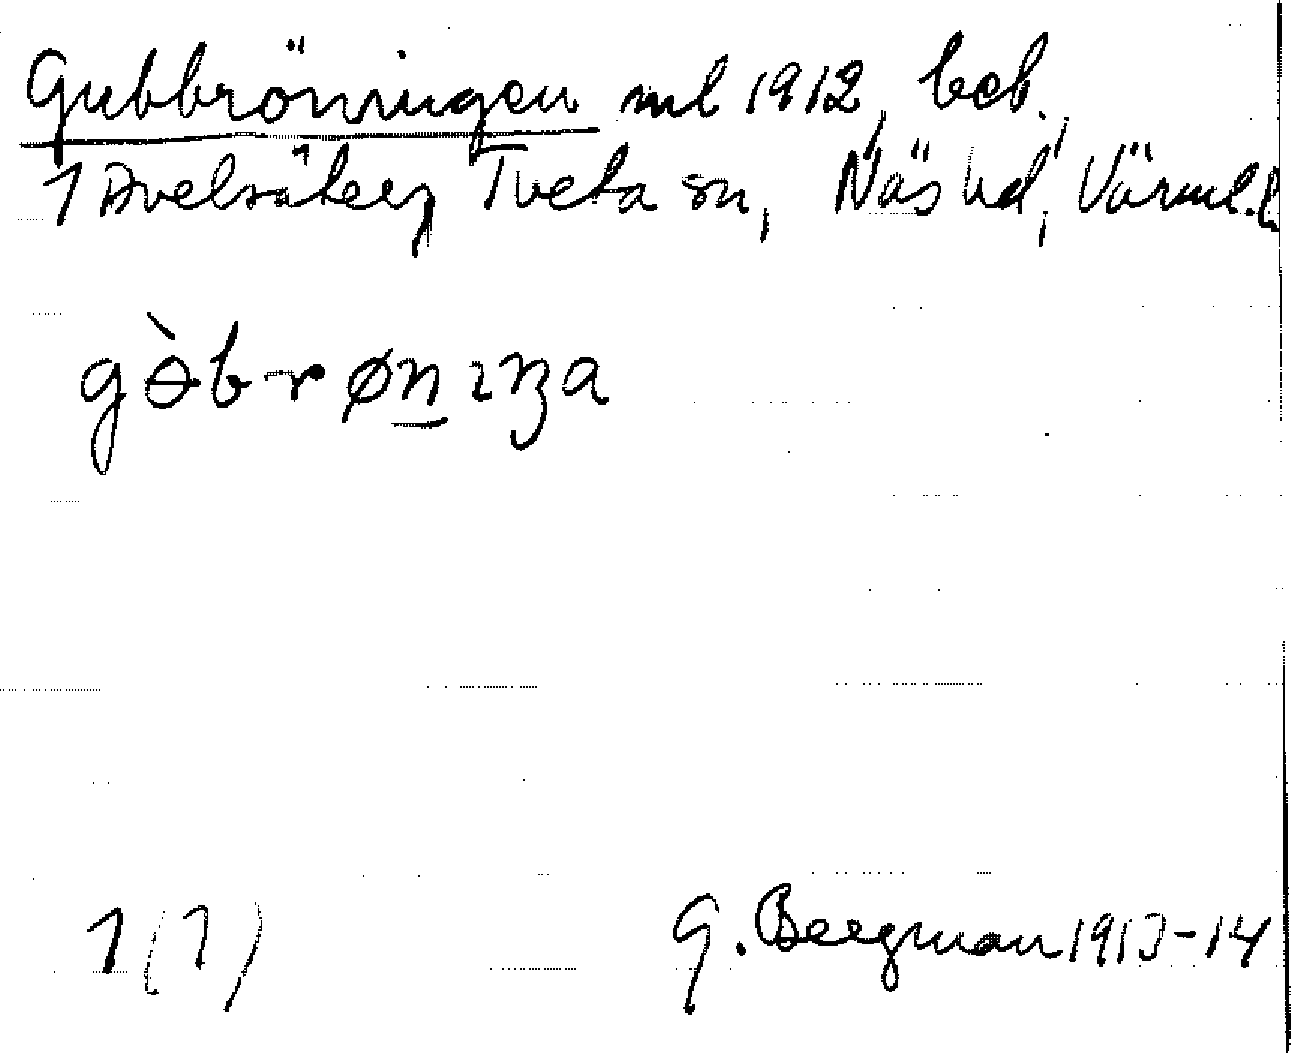 Gubbröningen ml 1912, beb.
1 Avelsäter, Tveta sn, Näs hd, Värml.l.
gòb-rønıŋa
1(1)
G. Bergman 1913-14